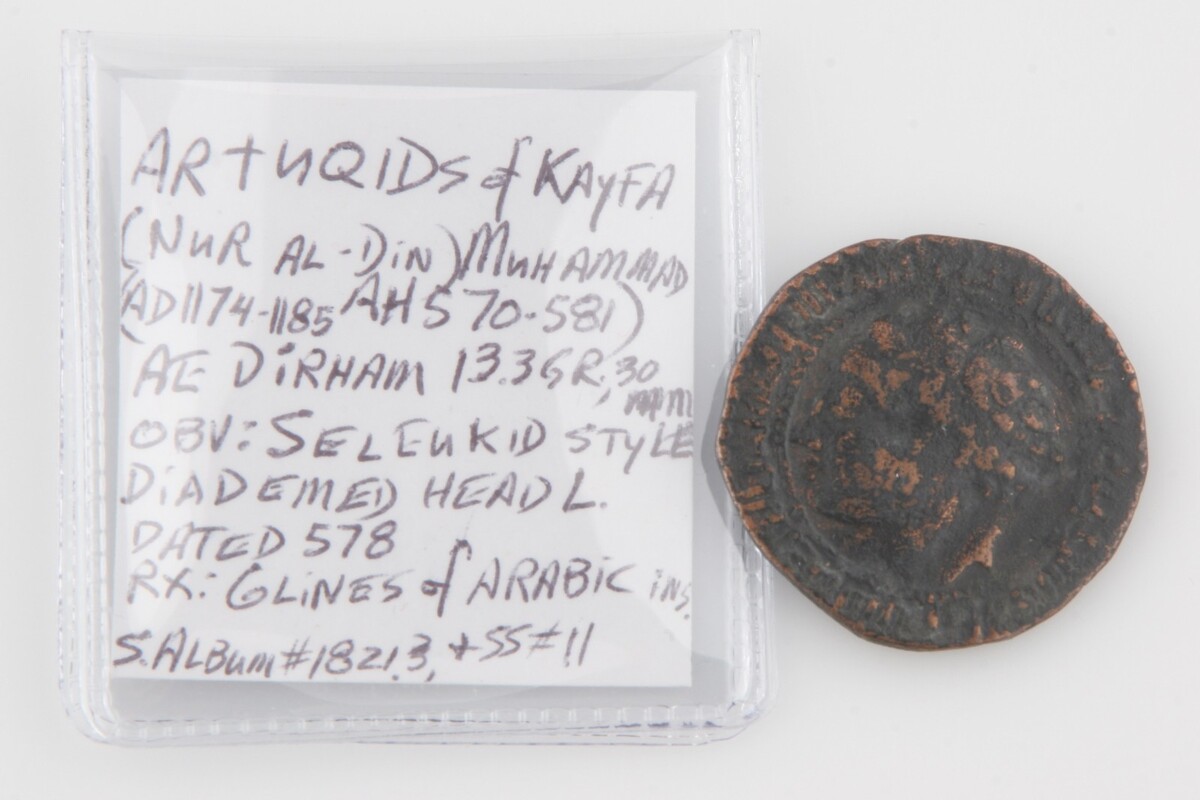 ARTUQIDS of KAYFA
(NUR AL-DIN) MUHAMMAD
(AD1174-1185 AH 570-581)
AE DIRHAM 13.3GR, 30
mm
OBV: SELEUKID STYLE
DIADEMED HEAD L.
DATED 578
RX: 6 LINES of ARABIC INS.
S. ALBUM #1821.3, + SS #11